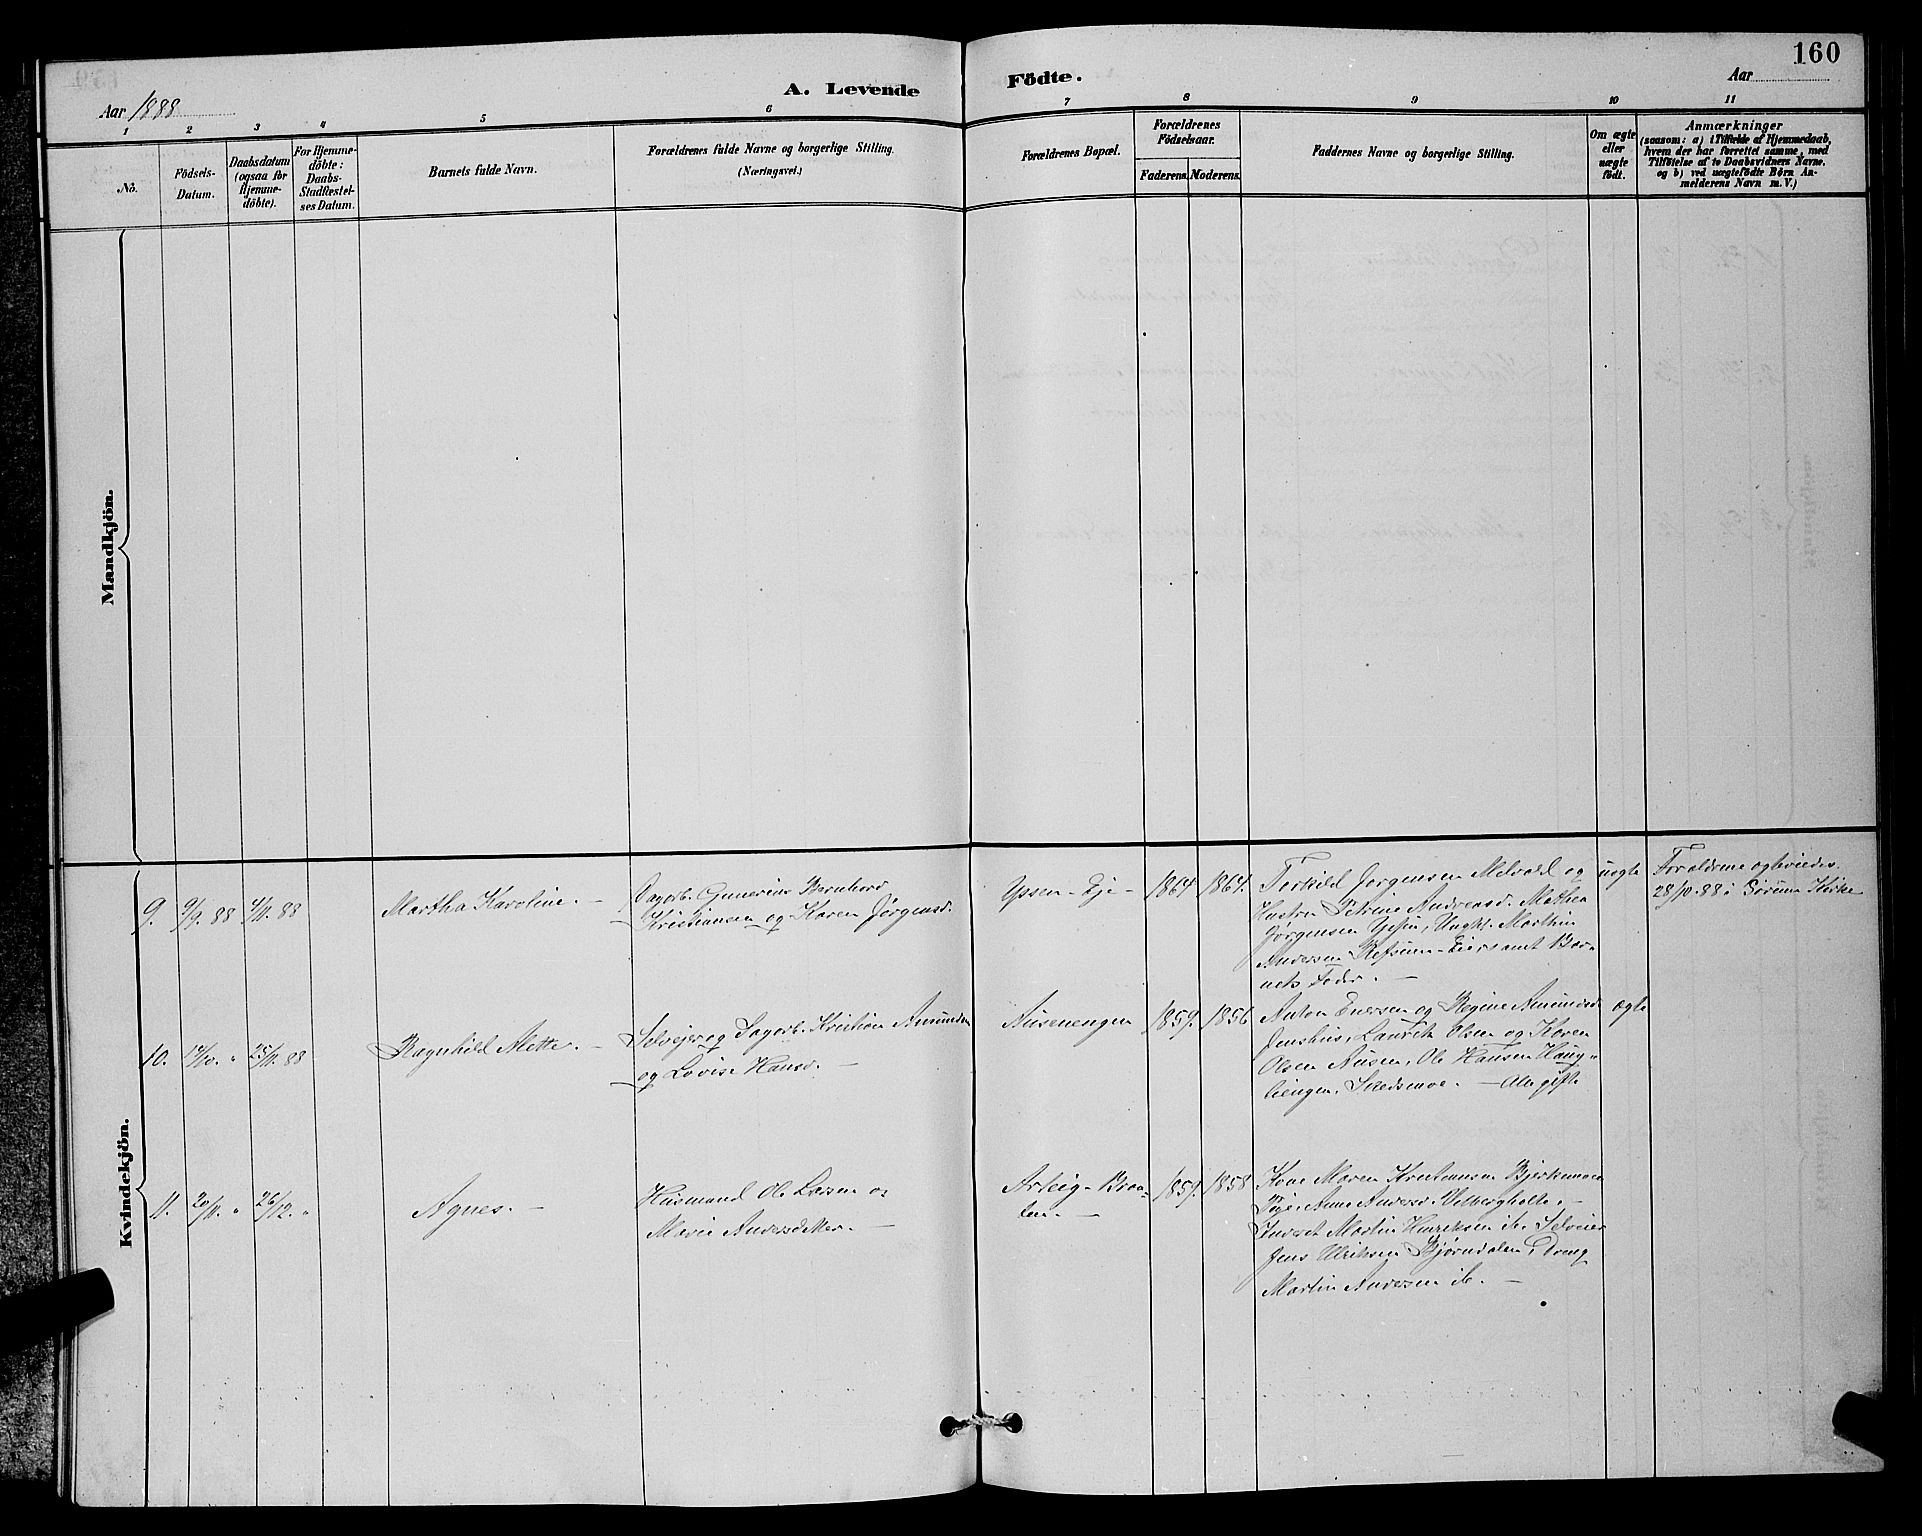 160
A. Levende Födte.
Aar 1888
Aar
1 2 3 4 5 6 7 8 9 10 11
No.
Födsels-
Datum.
Daabsdatum
(ogsaa for
Hjemme-
döbte).
For Hjemme-
döbte:
Daabs-
Stadfæstel-
ses Datum.
Barnets fulde Navn.
Forældrenes fulde Navne og borgerlige Stilling.
(Næringsvei.)
Forældrenes Bopæl.
Forældrenes
Födselsaar.
Faderens. Moderens.
Faddernes Navne og borgerlige Stilling.
Om ægte
eller
uægte
födt.
Anmærkninger
(saasom: a) i Tilfælde af Hjemmedaab,
hvem der har forrettet samme, med
Tilföielse af to Daabsvidners Navne,
og b) ved uægtefödte Börn An-
melderens Navn m. V.)
Mandkjön.
Kvindekjön.
9. 9/9 88 4/11 88
Martha Karoline. -
Dagarb. Gunerius Bernhard
Kristiansen og Karen Jørgensd.
Ypsen - Eje -
1864 1864.
Torkild Jørgensen Melvold og
Hustru Petrine Andreasd. Mathea
Jørgensen Ypsen, Ungk. Marthin
Andersen Refsum-Eier samt Bar-
nets Fader. -
uegte
Forældrene egteviedes
28/10 88 i Sörum Kirke
10. 14/10 " 25/11 88
Ragnhild Mette. -
Selvejer og Sagarb. Kristian Amundsen
og Lovise Hansd. -
Ausenengen
1859. 1856
Anton Enersen og Regine Amundsd.
Jenshus, Laurits Olsen og Karen
Olsen Ausen, Ole Hansen Haug-
liengen, Skedsmoe. - Alle gifte
egte
11. 20/11 " 26/12 "
Agnes. -
Husmand Ole Larsen og
Marie Andersdatter. -
Arteig-Braa-
ten. -
1859. 1858
Kone Maren Kristiansen Bjerkemoen
Pige Anne Andersd. Velberghalte. -
Inderst Martin Henriksen ib. Selveier
Jens Ulriksen Bjørndalen, Dreng
Martin Andersen ib. -